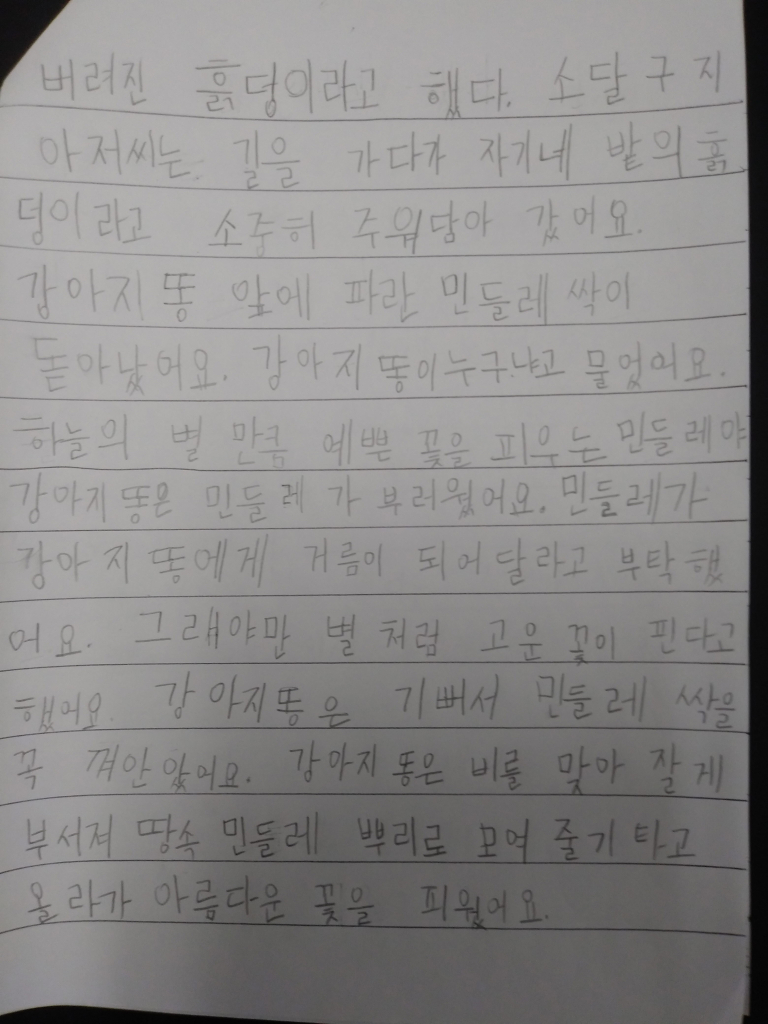 버려진 흙덩이라고 했다. 소달구지
아저씨는 길을 가다가 자기네 밭의 흙
덩이라고 소중히 주워담아 갔어요.
강아지 똥 앞에 파란 민들레 싹이
돋아났어요. 강아지 똥이 누구냐고 물었어요.
하늘의 별 만큼 예쁜 꽃을 피우는 민들레야
강아지 똥은 민들레 가 부러웠어요. 민들레가
강아지 똥에게 거름이 되어 달라고 부탁했
어요. 그래야만 별 처럼 고운 꽃이 핀다고
했어요. 강아지똥은 기뻐서 민들레 싹을
꼭 껴안았어요. 강아지 똥은 비를 맞아 잘게
부서져 땅속 민들레 뿌리로 모여 줄기 타고
올라가 아름다운 꽃을 피웠어요.